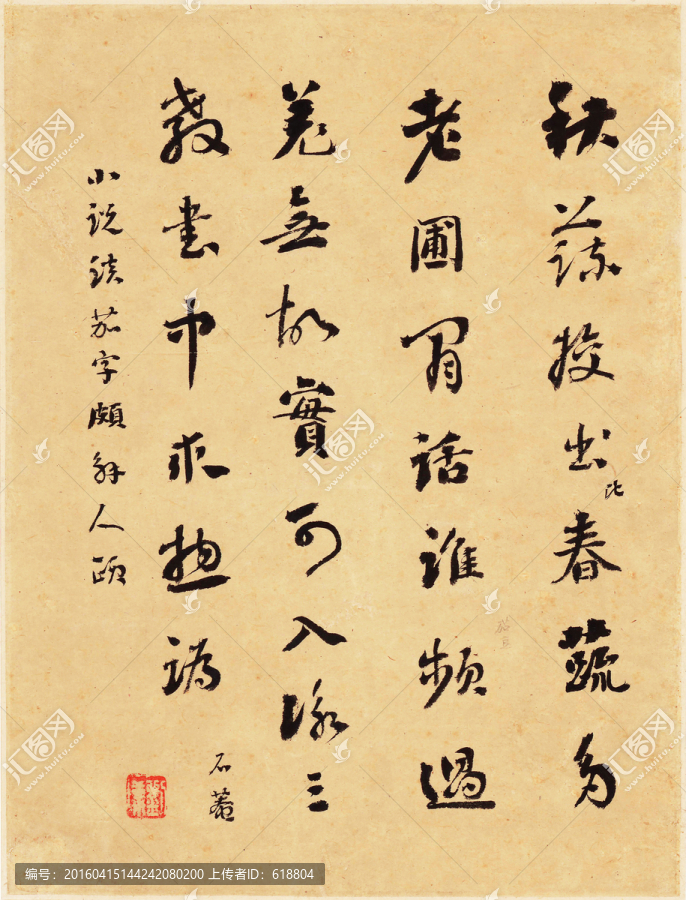 秋蔬挍出春蔬多
比
老圃閒話誰頻過
羌無故實可入詠三
教書中求譌
小說茄字頗解人頤
石菴
汇图网 www.huitu.com
编号：20160415144242080200 上传者ID：618804